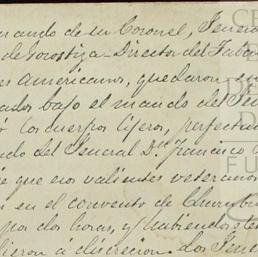 mando de su Coronel, Genera
de Gorostiza - Director del
es Americanos, quedaron en
bajo el mando del Gen
los cuerpos lijeros, perfectam
del General Dn. Francisco
que esos valientes veteranos
en el convento de Churubu
por dos horas, y habiendose
á discrecion. Los Gene